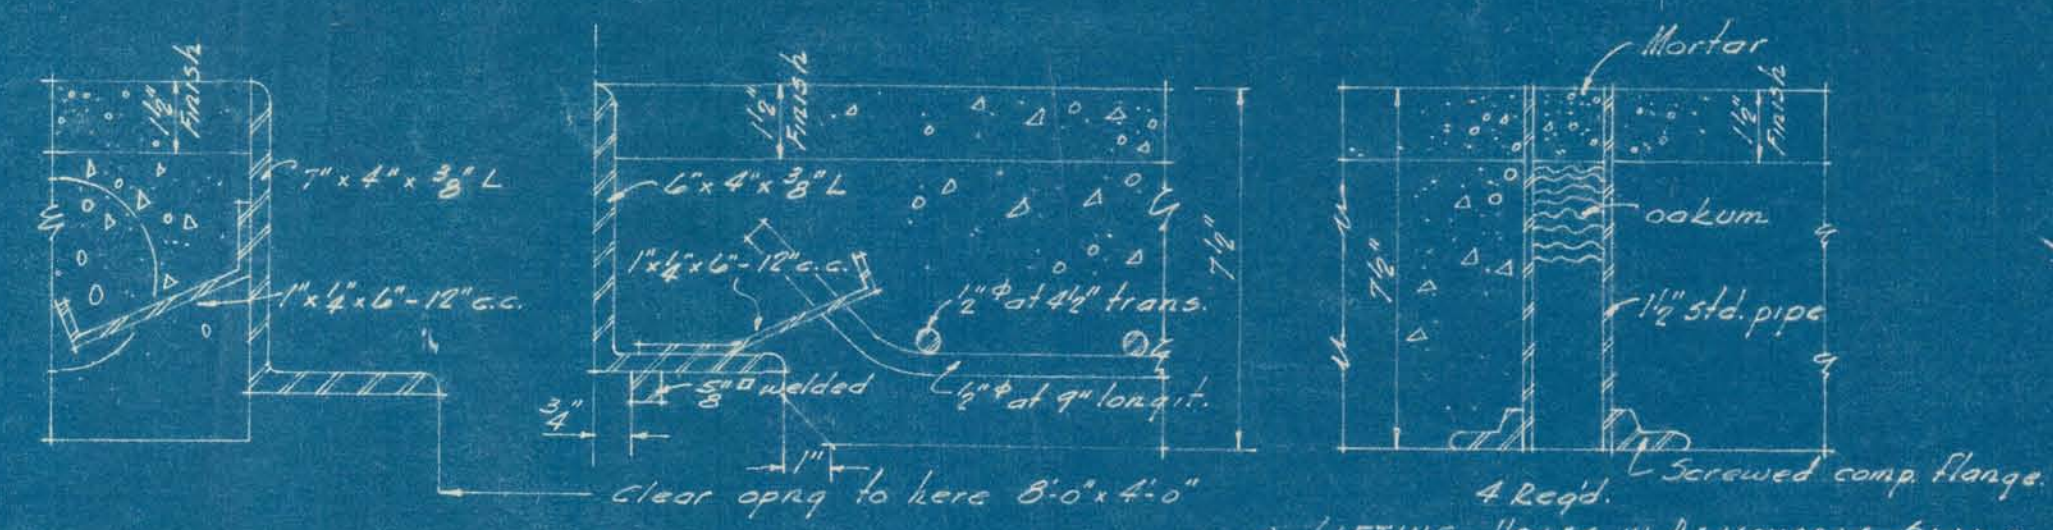 1½" Finish
7" x 4" x 3/8" L
1" x ¼" x 6" - 12" c.c.
1½" Finish
6" x 4" x 3/8" L
1" x ¼" x 6" - 12" c.c.
½" ϕ at 4½" trans.
½" ϕ at 9" longit.
7½"
5/8" □ welded
3/4"
1"
Clear opng to here 8'-0" x 4'-0"
Mortar
1½" Finish
oakum
7½"
1½" std. pipe
Screwed comp. flange.
4 Req'd.